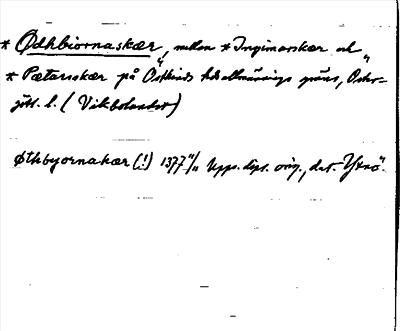 * Ødhbiornaskær, mellan * Ingimarskær och
* Pætarsskær på Östkinds hds allmännings gräns, Öster-
götl. l. (Vikbolandet)
Øthbyornakær (!) 1377 11/11 Upps. dipl. orig., dat. Ytrö.